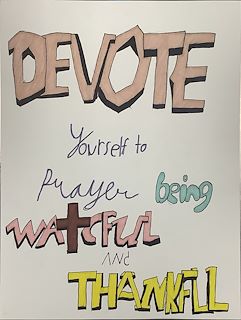 DEVOTE
Yourself to
Prayer being
WATCFUL
AND
THANKFLL